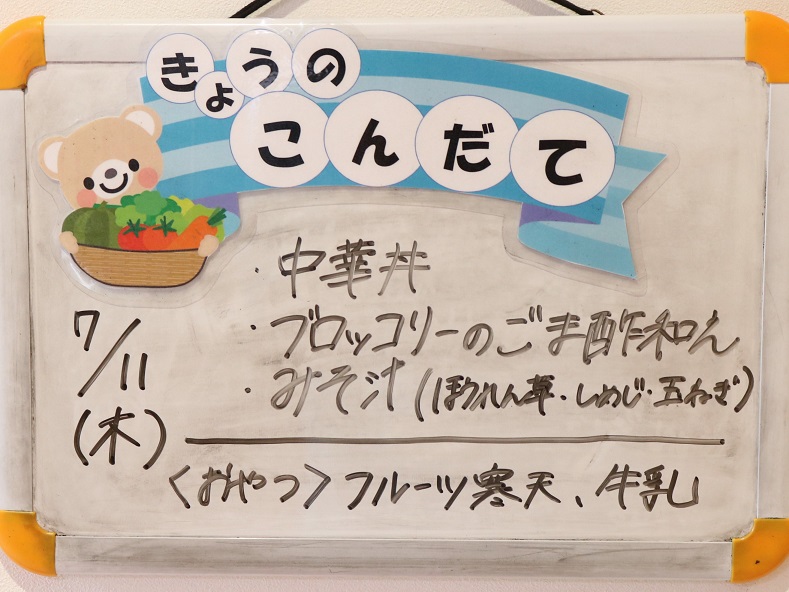 きょうの
こんだて
7/11
(木)
・中華丼
・ブロッコリーのごま酢和え
・みそ汁(ほうれん草・しめじ・玉ねぎ)
〈おやつ〉フルーツ寒天、牛乳